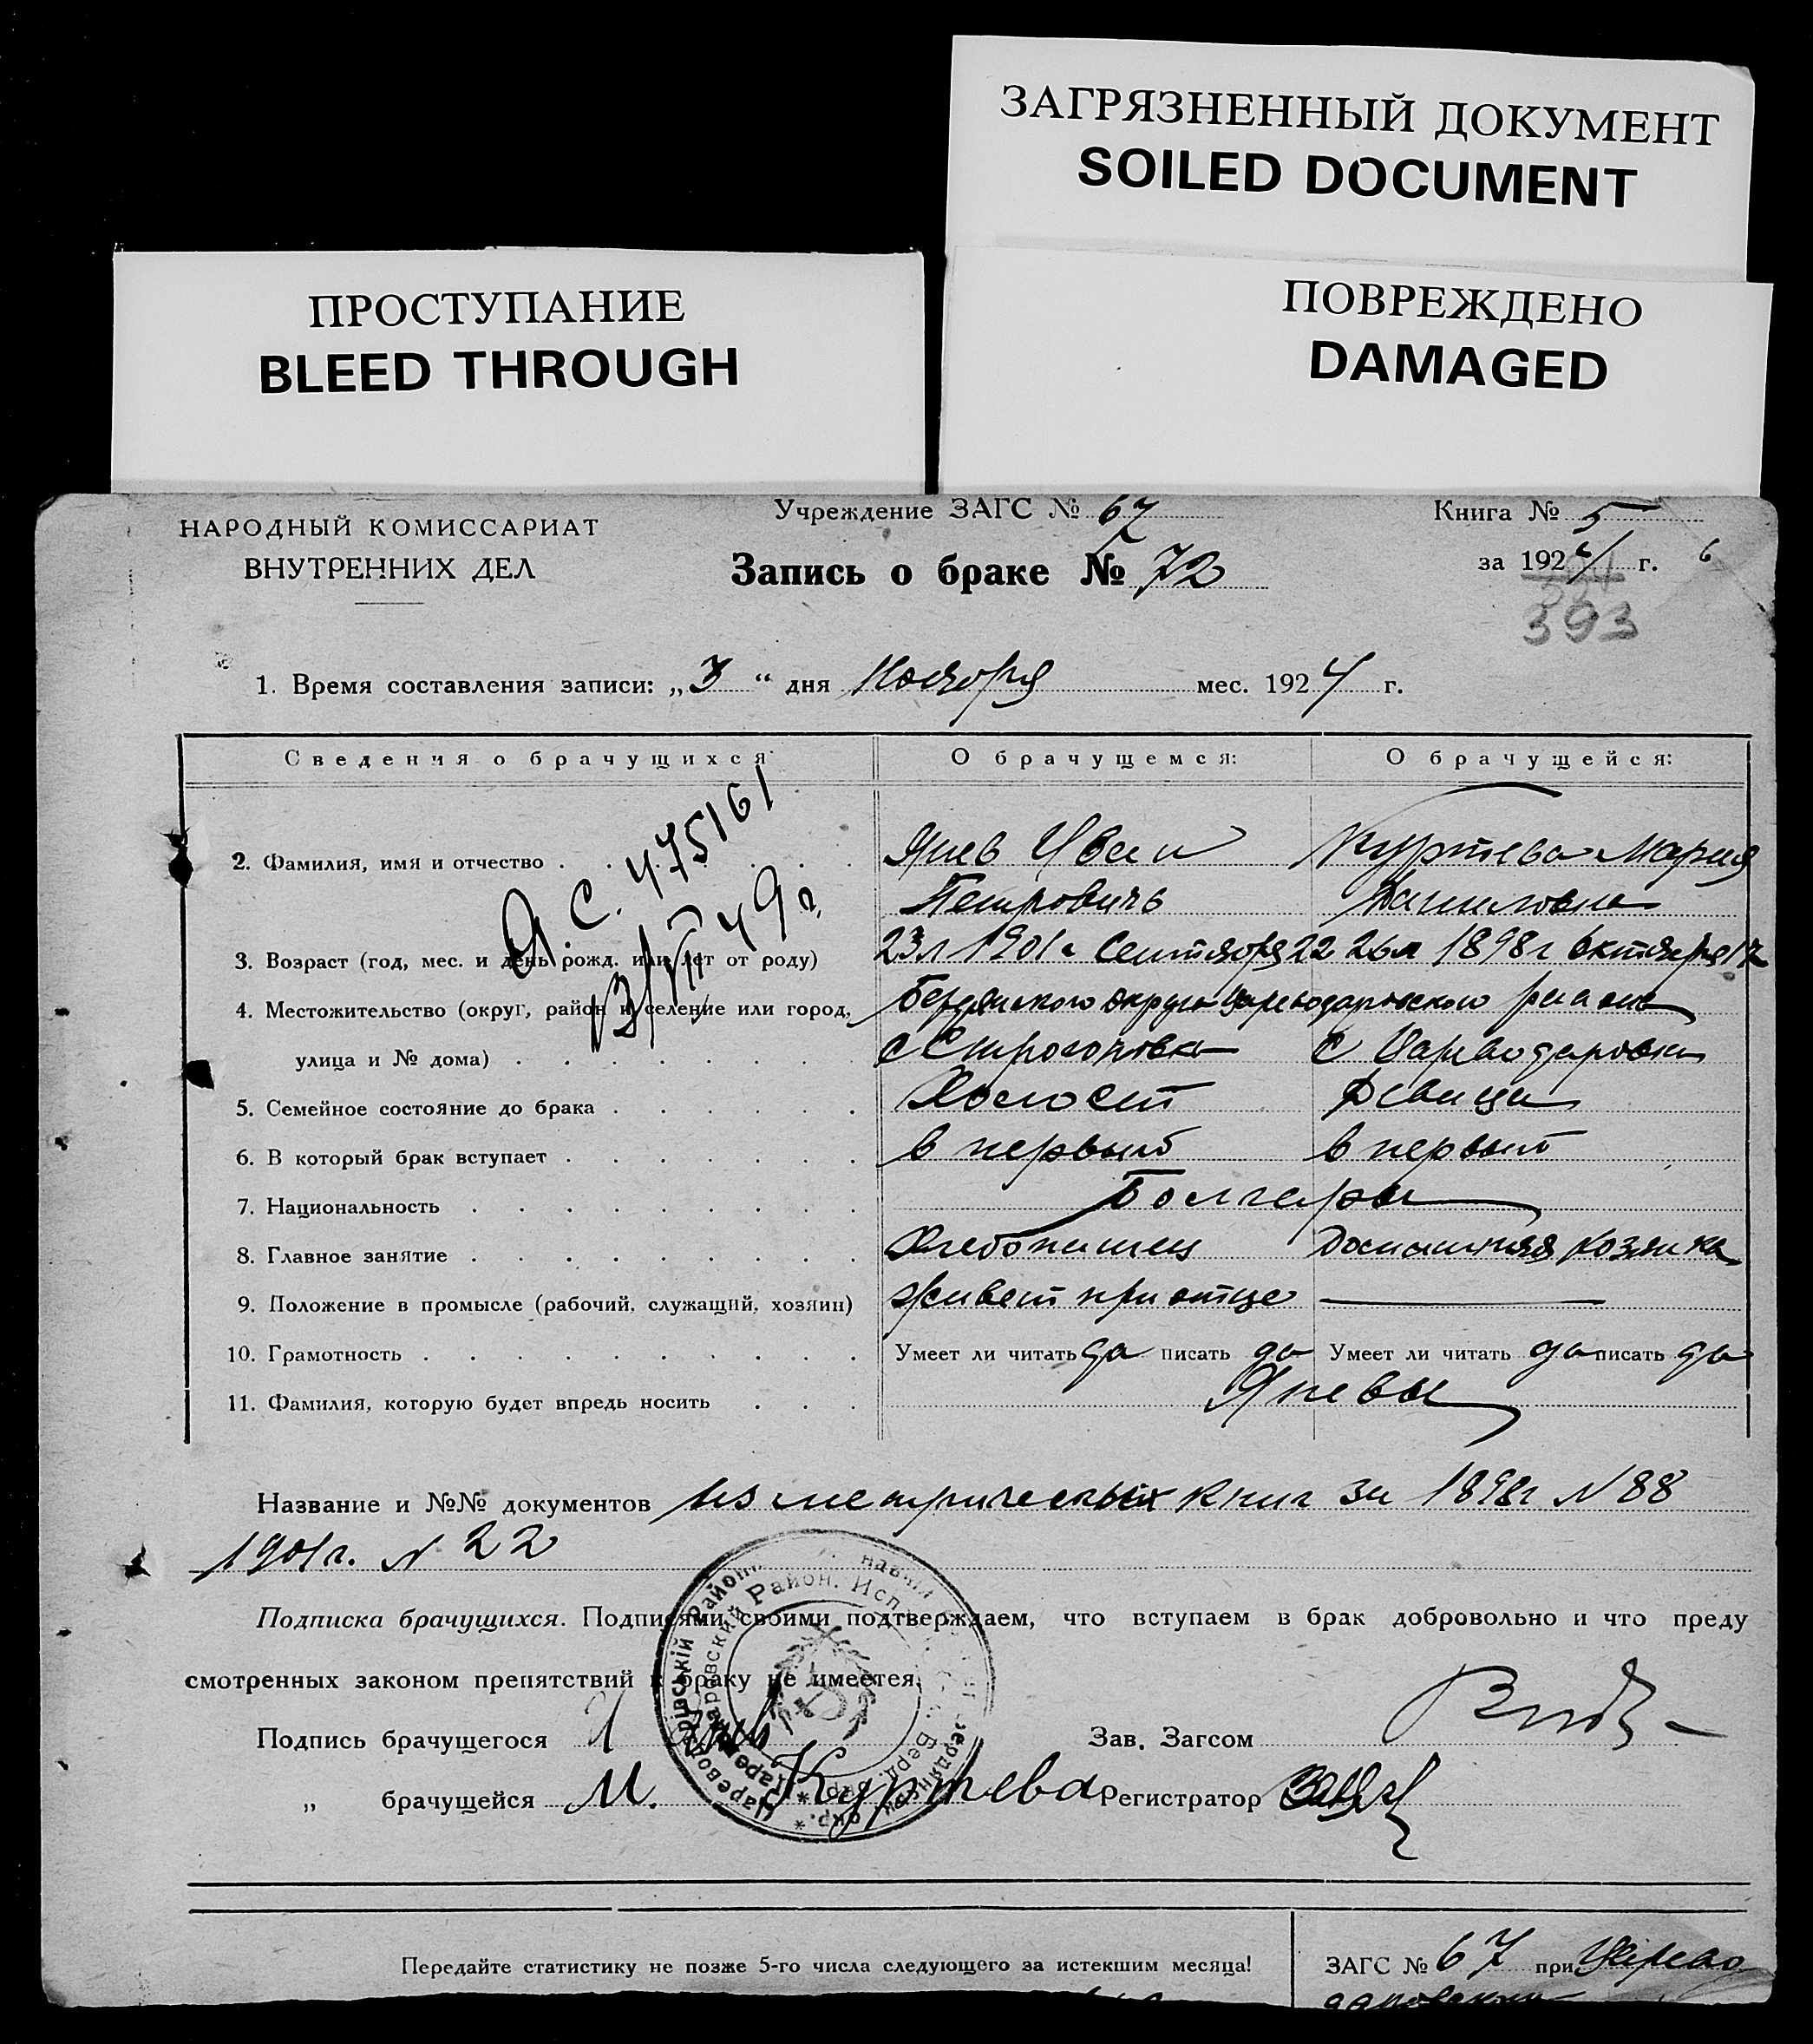 ЗАГРЯЗНЕННЫЙ ДОКУМЕНТ
SOILED DOCUMENT
ПРОСТУПАНИЕ
BLEED THROUGH
ПОВРЕЖДЕНО
DAMAGED
НАРОДНЫЙ КОМИССАРИАТ
ВНУТРЕННИХ ДЕЛ
Учреждение ЗАГС № 67
Запись о браке № 72
Книга № 5
за 1924 г. 6
393
1. Время составления записи: „3“ дня Ноября мес. 1924 г.
Сведения о брачущихся
О брачущемся:
О брачущейся:
Я.С. 475161
13/VII 49 г,
2. Фамилия, имя и отчество Янев Иван Куртева Мария
Петрович Даниловна
3. Возраст (год, мес. и день рожд. или лет от роду) 23 л 1901 г Сентября 22 26 л 1898 г Октября 17
4. Местожительство (округ, район и селение или город, Бердянского округа Цареводаровского района
улица и № дома) с Строгоновка с Цареводаровки
5. Семейное состояние до брака Холост Девица
6. В который брак вступает в первый в первый
7. Национальность Болгары
8. Главное занятие Хлебопашец Домашняя хозяйка
9. Положение в промысле (рабочий, служащий, хозяин) живет при отце —
10. Грамотность Умеет ли читать да писать да Умеет ли читать да писать да
11. Фамилия, которую будет впредь носить Яневы
Название и №№ документов из метрических книг за 1898 г № 88
1901 г. № 22
Подписка брачущихся. Подписями своими подтверждаем, что вступаем в брак добровольно и что преду
смотренных законом препятствий к браку не имеется.
Подпись брачущегося
Зав. Загсом
„ брачущейся М. Куртева
Регистратор
Передайте статистику не позже 5-го числа следующего за истекшим месяца!
ЗАГС № 67 при Царево
даровском